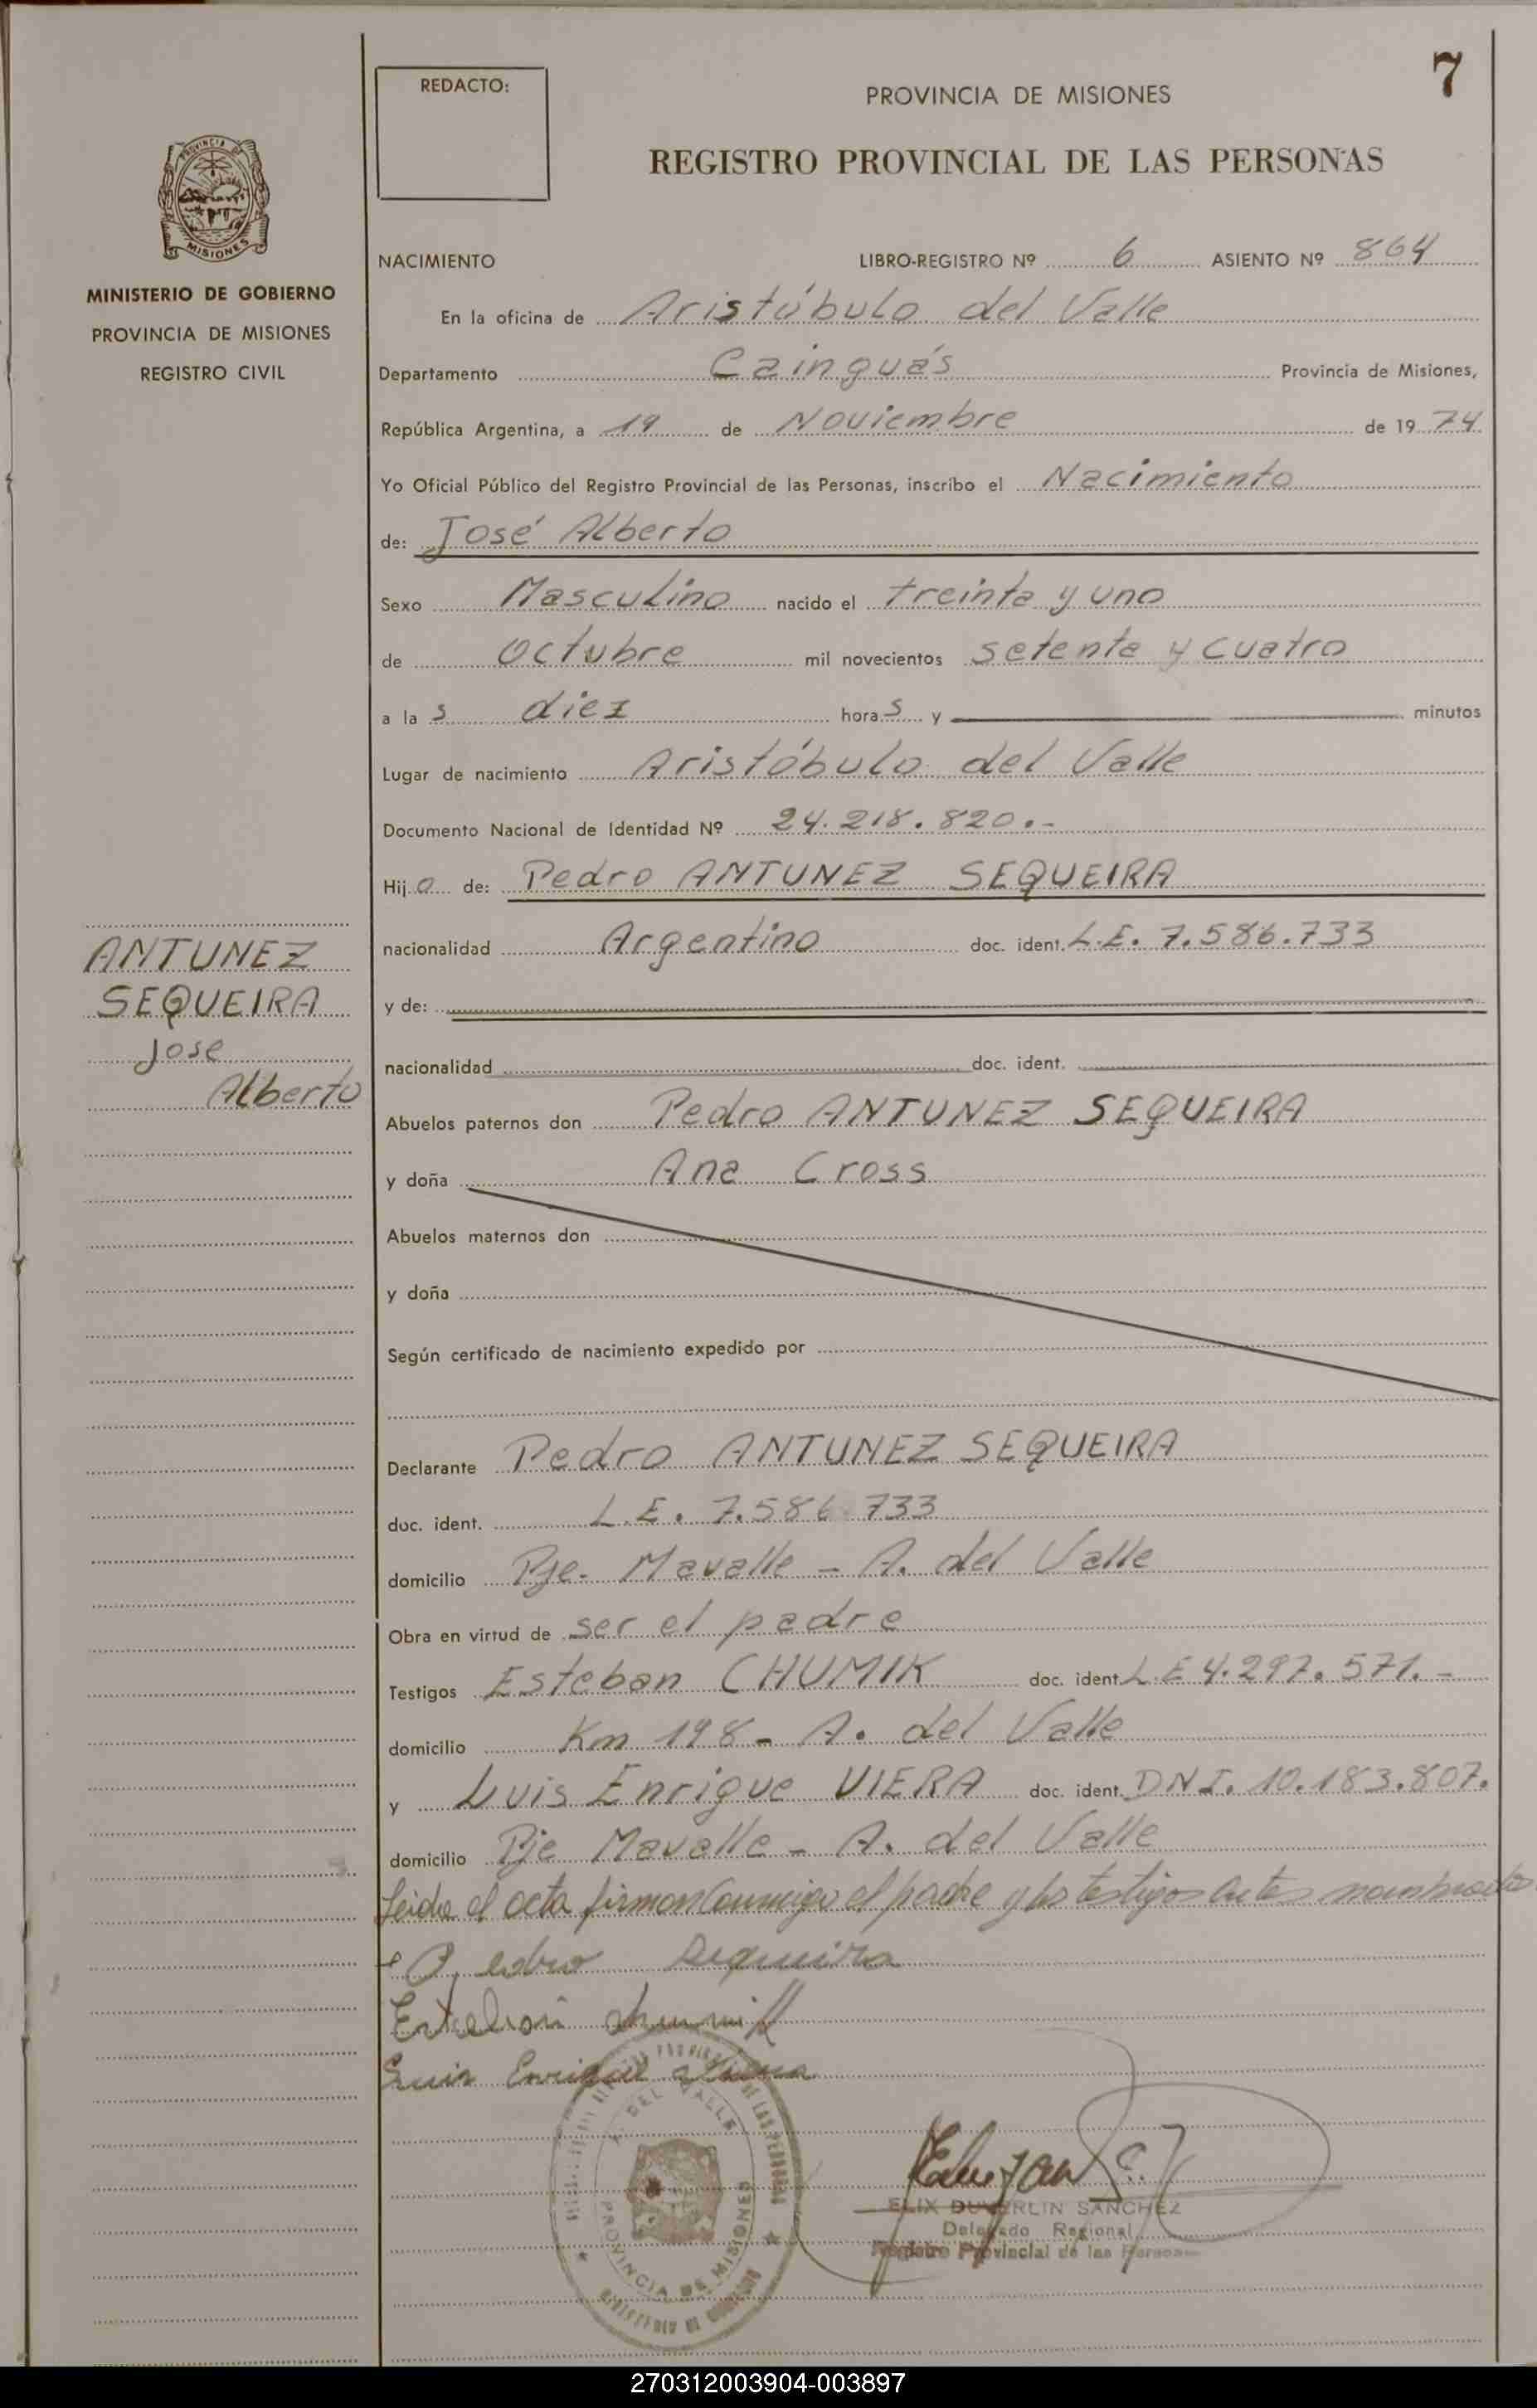 7
REDACTO:
PROVINCIA DE MISIONES
REGISTRO PROVINCIAL DE LAS PERSONAS
PROVINCIA DE
MISIONES
MINISTERIO DE GOBIERNO
PROVINCIA DE MISIONES
REGISTRO CIVIL
NACIMIENTO LIBRO-REGISTRO Nº 6 ASIENTO Nº 864
En la oficina de Aristóbulo del Valle
Departamento Cainguás Provincia de Misiones,
República Argentina, a 19 de Noviembre de 1974
Yo Oficial Público del Registro Provincial de las Personas, inscribo el Nacimiento
de: José Alberto
Sexo Masculino nacido el treinta y uno
de Octubre mil novecientos setenta y cuatro
a las diez horas y minutos
Lugar de nacimiento Aristóbulo del Valle
Documento Nacional de Identidad Nº 24.218.820.-
Hijo de: Pedro ANTUNEZ SEQUEIRA
nacionalidad Argentino doc. ident. L.E. 7.586.733
y de:
nacionalidad doc. ident.
ANTUNEZ
SEQUEIRA
Jose
Alberto
Abuelos paternos don Pedro ANTUNEZ SEQUEIRA
y doña Ana Cross
Abuelos maternos don
y doña
Según certificado de nacimiento expedido por
Declarante Pedro ANTUNEZ SEQUEIRA
doc. ident. L.E. 7.586.733
domicilio Pje. Mavalle - A. del Valle
Obra en virtud de ser el padre
Testigos Esteban CHUMIK doc. ident. L.E 4.297.571.-
domicilio Km 198 - A. del Valle
y Luis Enrique VIERA doc. ident. DNI. 10.183.807.
domicilio Pje Mavalle - A. del Valle
Leida el acta firman conmigo el padre y los testigos antes nombrados
Pedro Sequeira
Esteban Chumik
Luis Enrique Viera
A. DEL VALLE
PROVINCIA DE MISIONES
ELIX DUVERLIN SANCHEZ
Delegado Regional
Registro Provincial de las Personas
270312003904-003897